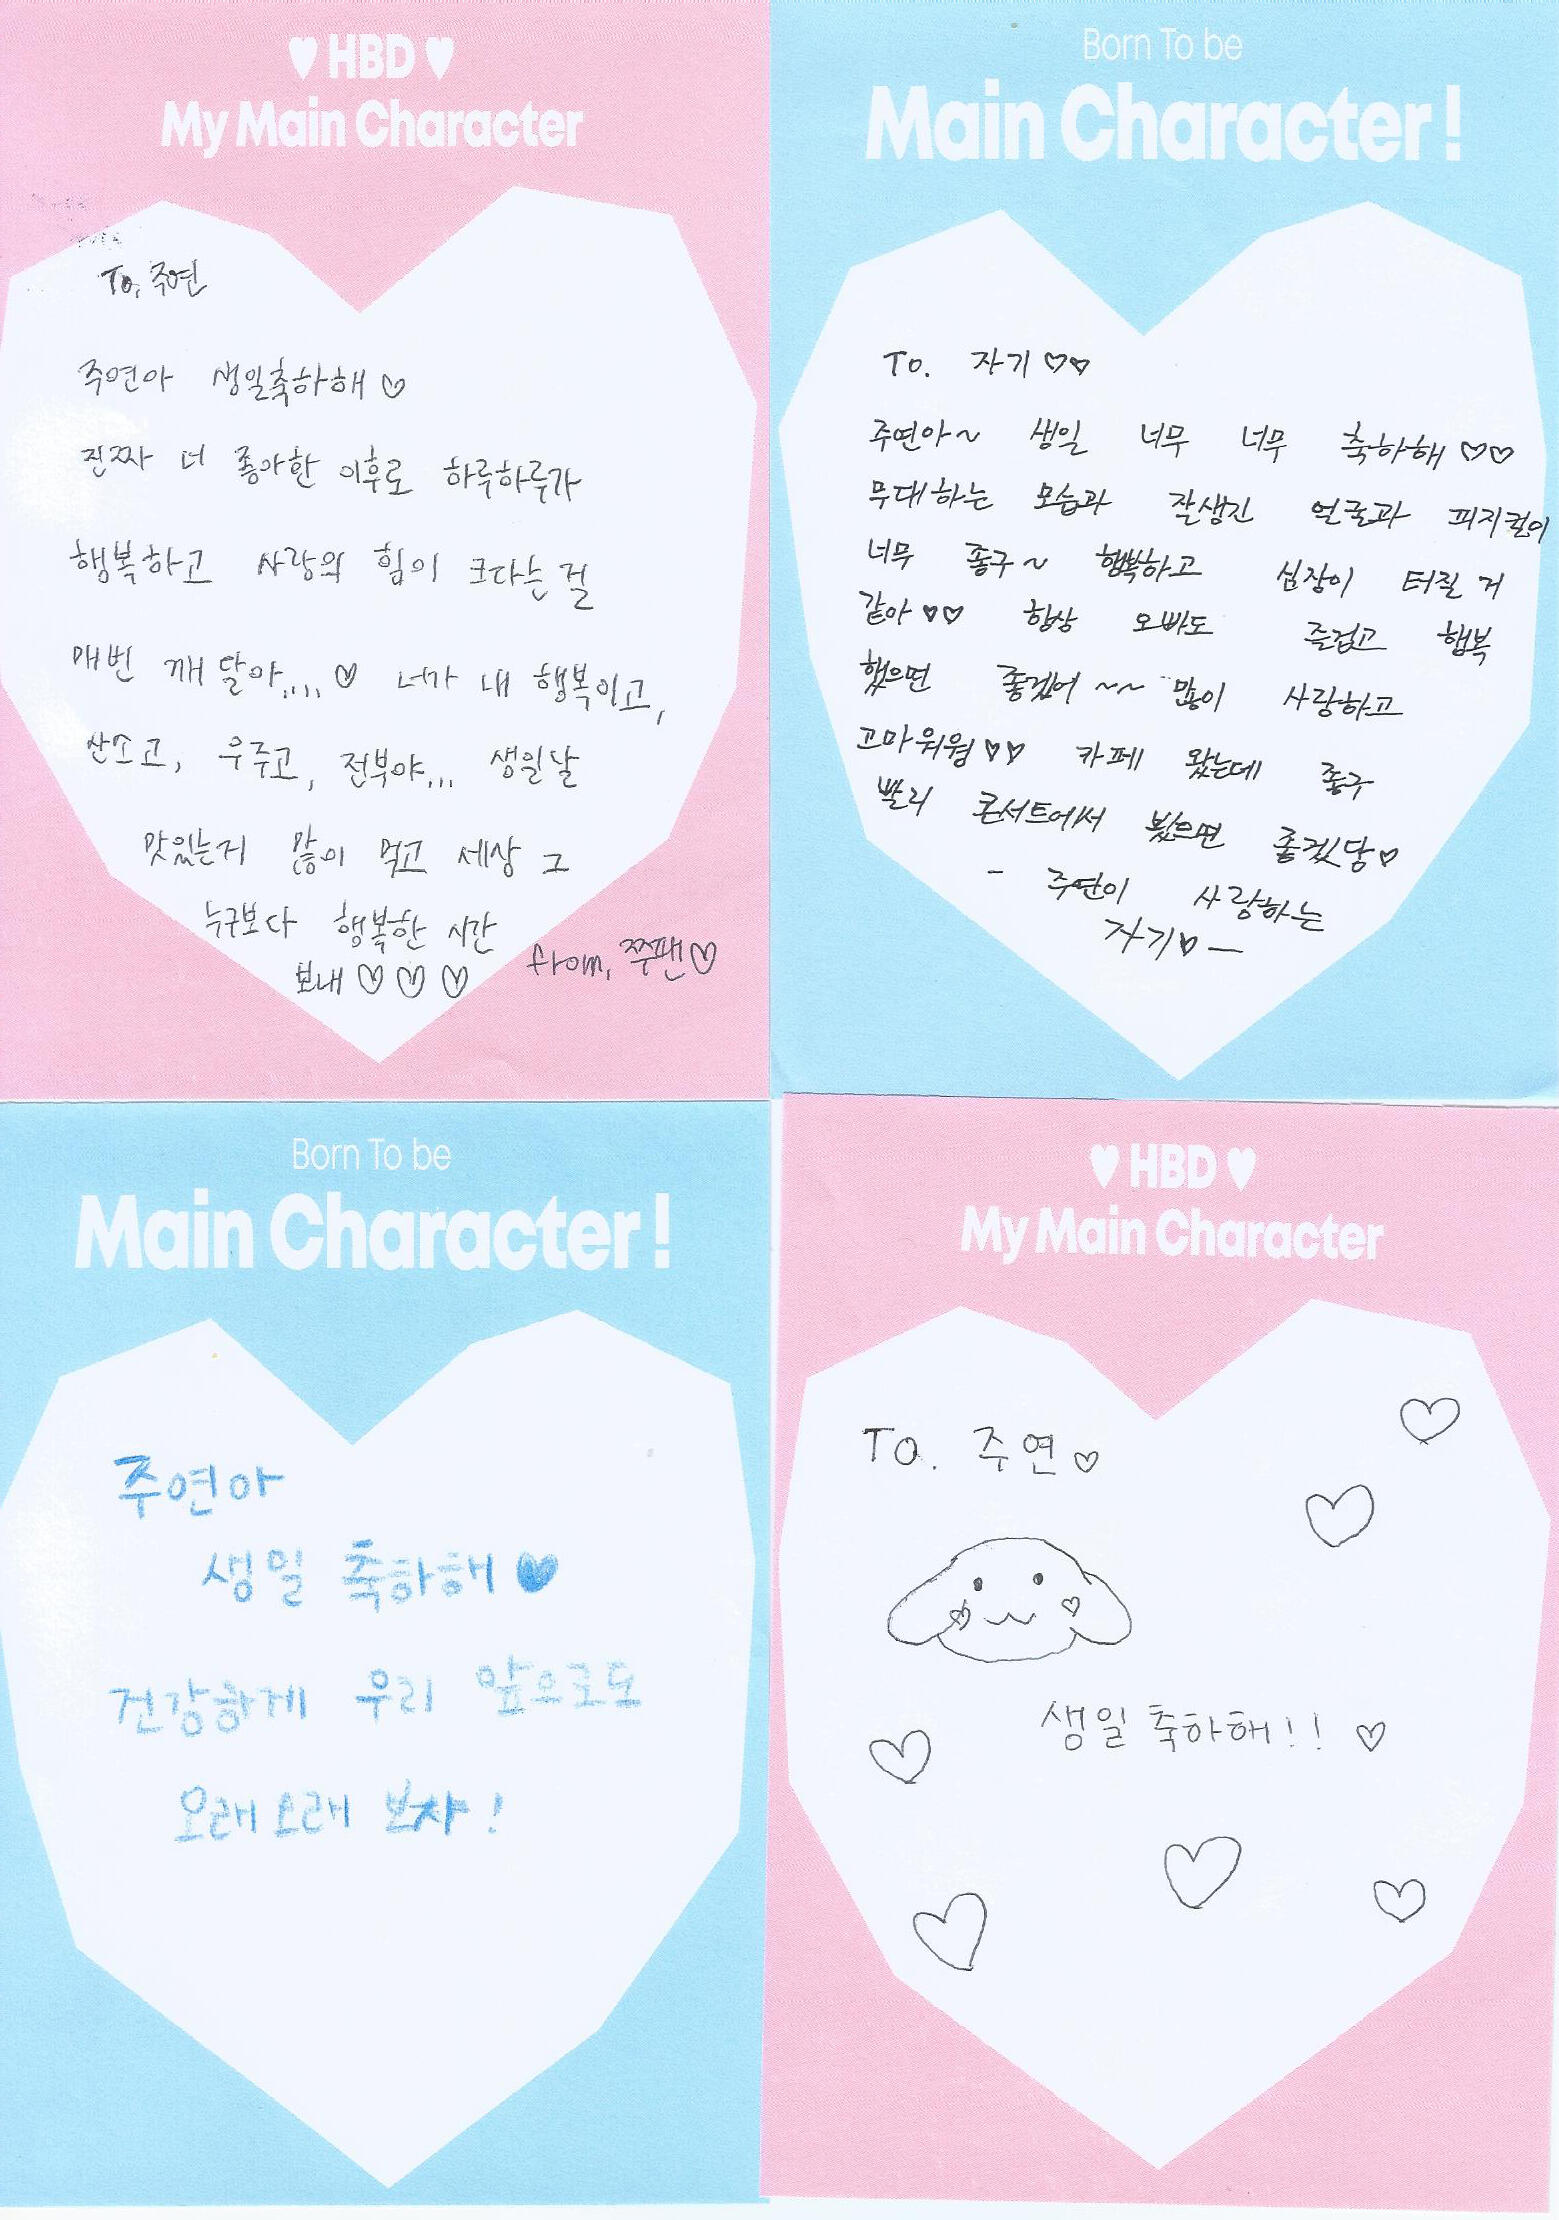 ♥ HBD ♥
My Main Character
To, 주연
주연아 생일축하해 ♡
진짜 너 좋아한 이후로 하루하루가
행복하고 사랑의 힘이 크다는 걸
매번 깨달아.... ♡ 너가 내 행복이고,
산소고, 우주고, 전부야... 생일날
맛있는거 많이 먹고 세상 그
누구보다 행복한 시간
보내 ♡ ♡ ♡
from, 쭈팬♡
Born To be
Main Character!
To. 자기 ♡♡
주연아~ 생일 너무 너무 축하해 ♡♡
무대하는 모습과 잘생긴 얼굴과 피지컬이
너무 좋구~ 행복하고 심장이 터질 거
같아 ♡♡ 항상 오빠도 즐겁고 행복
했으면 좋겠어 ~~ 많이 사랑하고
고마워웡 ♡♡ 카페 왔는데 좋구
빨리 콘서트에서 봤으면 좋겠당♡
- 주연이 사랑하는
자기♡ -
Born To be
Main Character!
주연아
생일 축하해 ♥
건강하게 우리 앞으로도
오래오래 보자!
♥ HBD ♥
My Main Character
To. 주연♡
생일 축하해!! ♡